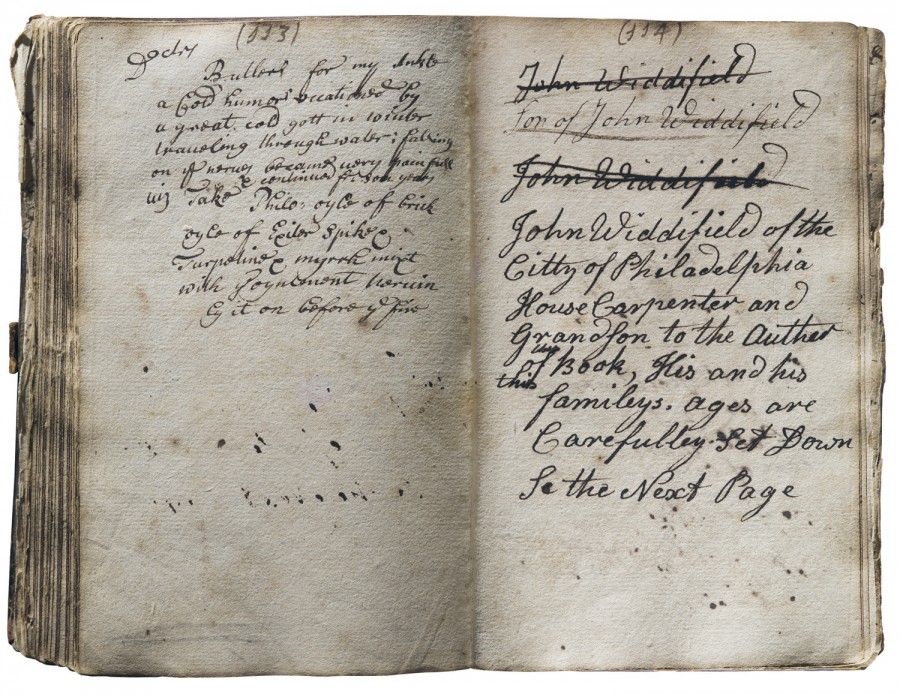 (113)
Butlers for my Ankle
a Cold humor occationed by
a great cold gott in winter
traveling through water; falling
on ye nerves became very painfull
& continued years
viz Take Philo: oyle of brick
oyle of Exiter Spike
Turpetine myrrh mixt
with oyntment
Ly it on before ye fire
(114)
John Widdifield
son of John Widdifield
John Widdifield
John Widdifield of the
Citty of Philadelphia
House Carpenter and
Grandson to the Auther
of Book, His and his
this
famileys. ages are
Carefulley Set Down
Se the Next Page